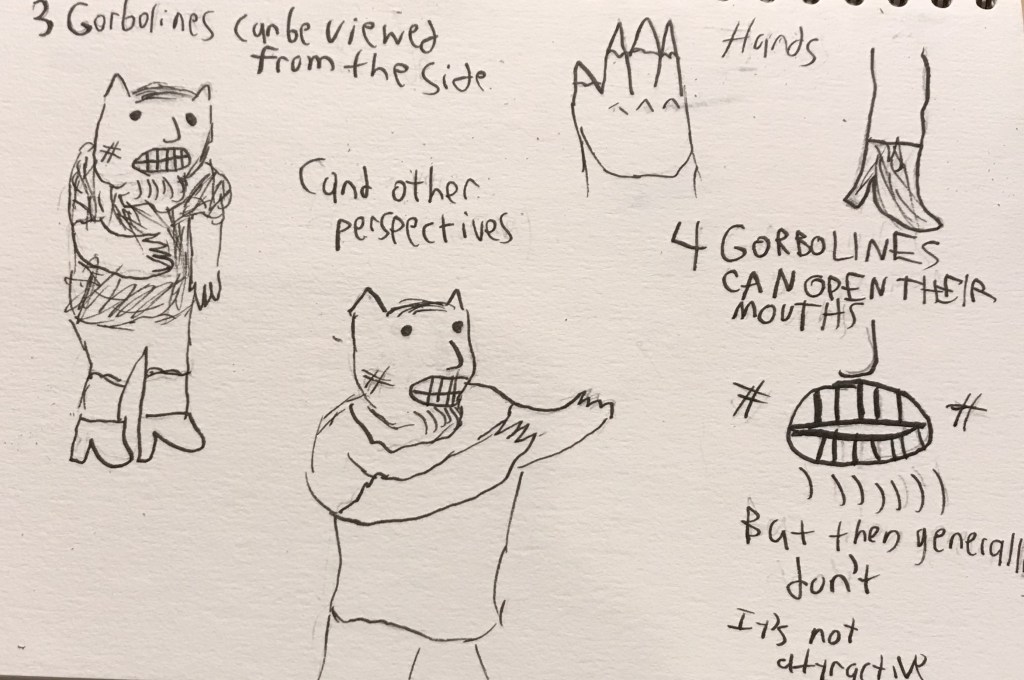 3 Gorbolines can be viewed
from the side
(and other
perspectives
Hands
4 GORBOLINES
CAN OPEN THEIR
MOUTHS
But then generall
don't
It's not
attyractive